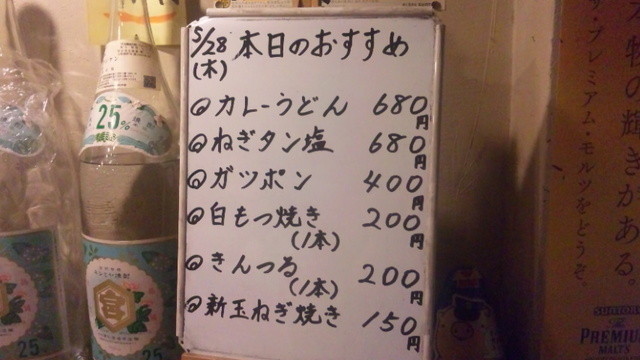 5/28 本日のおすすめ
(木)
カレーうどん 680円
ねぎタン塩 680円
ガツポン 400円
白もつ焼き 200円
(1本)
きんつる 200円
(1本)
新玉ねぎ焼き 150円
25%
宮
25
の輝きがある。
ザ・プレミアム・モルツをどうぞ。
SUNTORY
PREMIUM
MALT'S
25